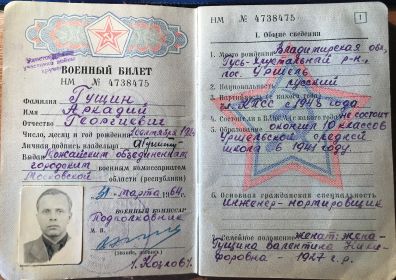 ВОЕННЫЙ БИЛЕТ
НМ № 4738475
Фамилия Гущин
Имя Аркадий
Отчество Георгиевич
Число, месяц и год рождения
Личная подпись владельца
Выдан Можайским объединенным
городским военным комиссариатом
Московской области (республики)
марта 1964 г.
ВОЕННЫЙ КОМИССАР
Подполковник
М. П.
(звание, подпись)
Козлов
НМ № 4738475
1
I. Общие сведения
1. Место рождения Владимирская обл,
Гусь-Хрустальный р-н,
пос. Уршель
2. Национальность русский
3. Партийность и с какого года
чл. КПСС с 1948 года
4. Состоял ли в ВЛКСМ с какого года не состоит
5. Образование окончил 10 классов
Уршельской средней
школы в 1941 году.
6. Основная гражданская специальность
инженер-нормировщик
7. Семейное положение женат: жена-
Гущина Валентина Ники-
форовна - 1927 г.р.